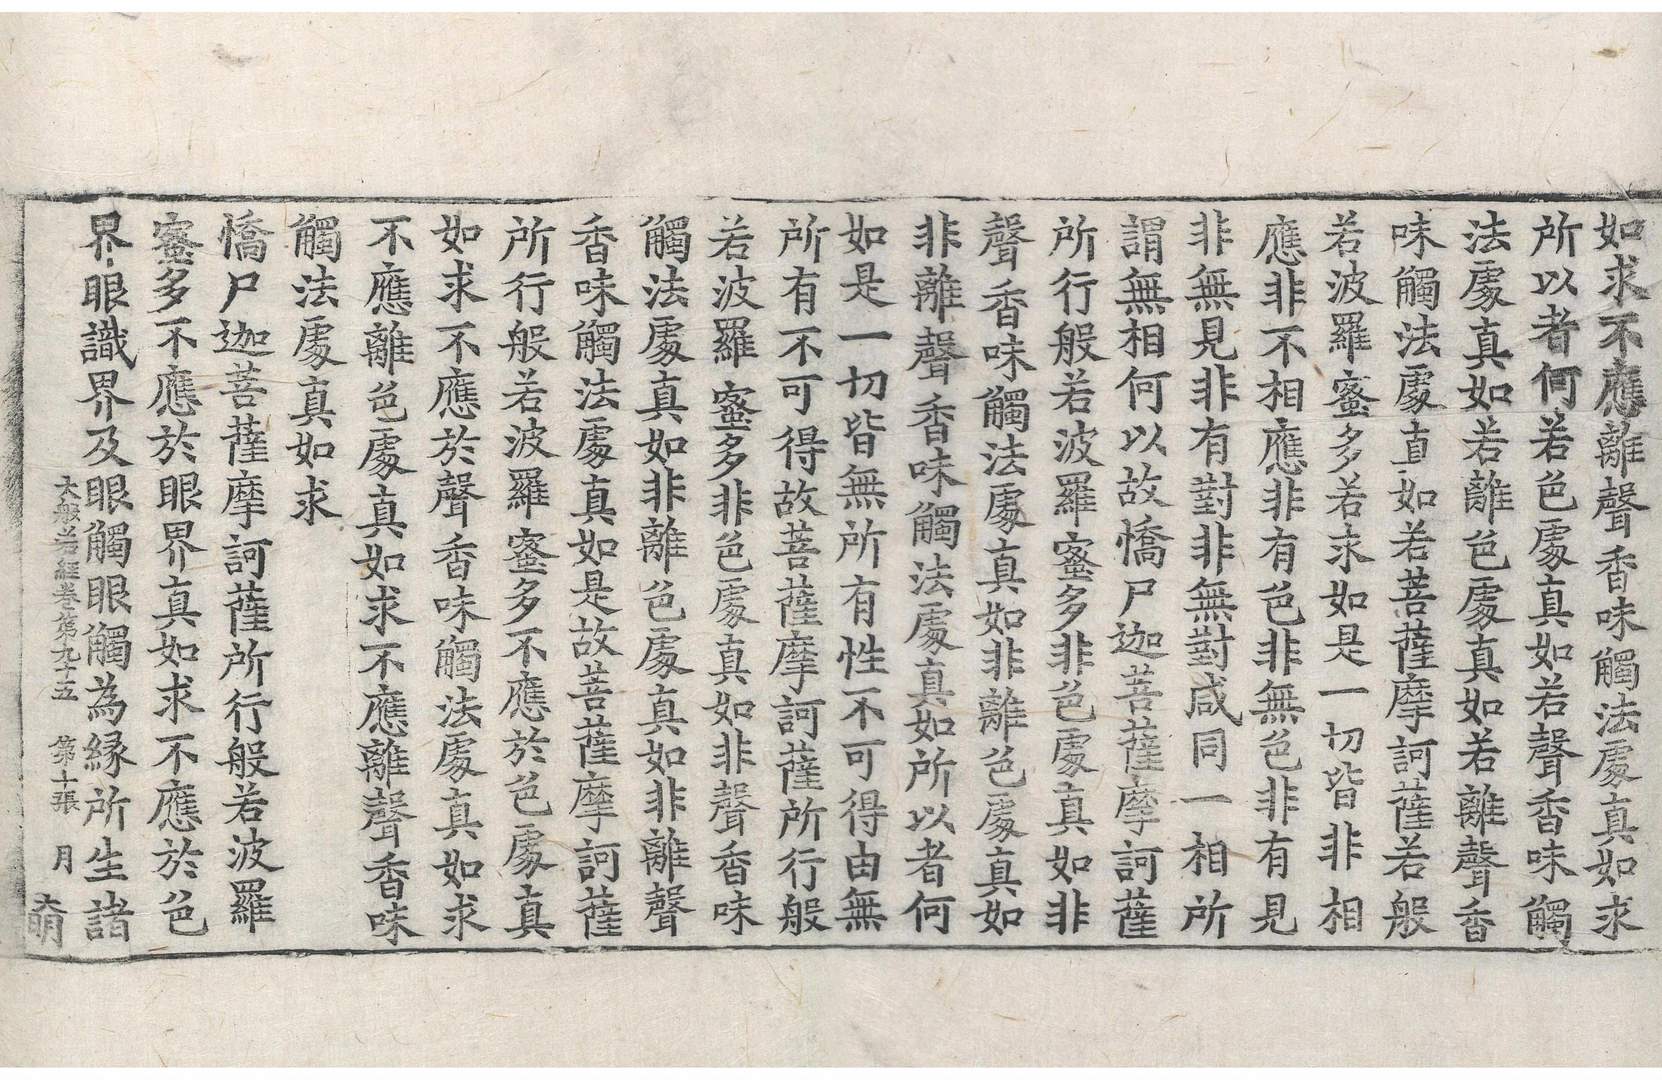 如求不應離聲香味觸法處真如求
所以者何若色處真如若聲香味觸
法處真如若離色處真如若離聲香
味觸法處真如若菩薩摩訶薩若般
若波羅蜜多若求如是一切皆非相
應非不相應非有色非無色非有見
非無見非有對非無對咸同一相所
謂無相何以故憍尸迦菩薩摩訶薩
所行般若波羅蜜多非色處真如非
聲香味觸法處真如非離色處真如
非離聲香味觸法處真如所以者何
如是一切皆無所有性不可得由無
所有不可得故菩薩摩訶薩所行般
若波羅蜜多非色處真如非聲香味
觸法處真如非離色處真如非離聲
香味觸法處真如是故菩薩摩訶薩
所行般若波羅蜜多不應於色處真
如求不應於聲香味觸法處真如求
不應離色處真如求不應離聲香味
觸法處真如求
憍尸迦菩薩摩訶薩所行般若波羅
蜜多不應於眼界真如求不應於色
界眼識界及眼觸眼觸為縁所生諸
大般若經卷第九十五 第十張 月